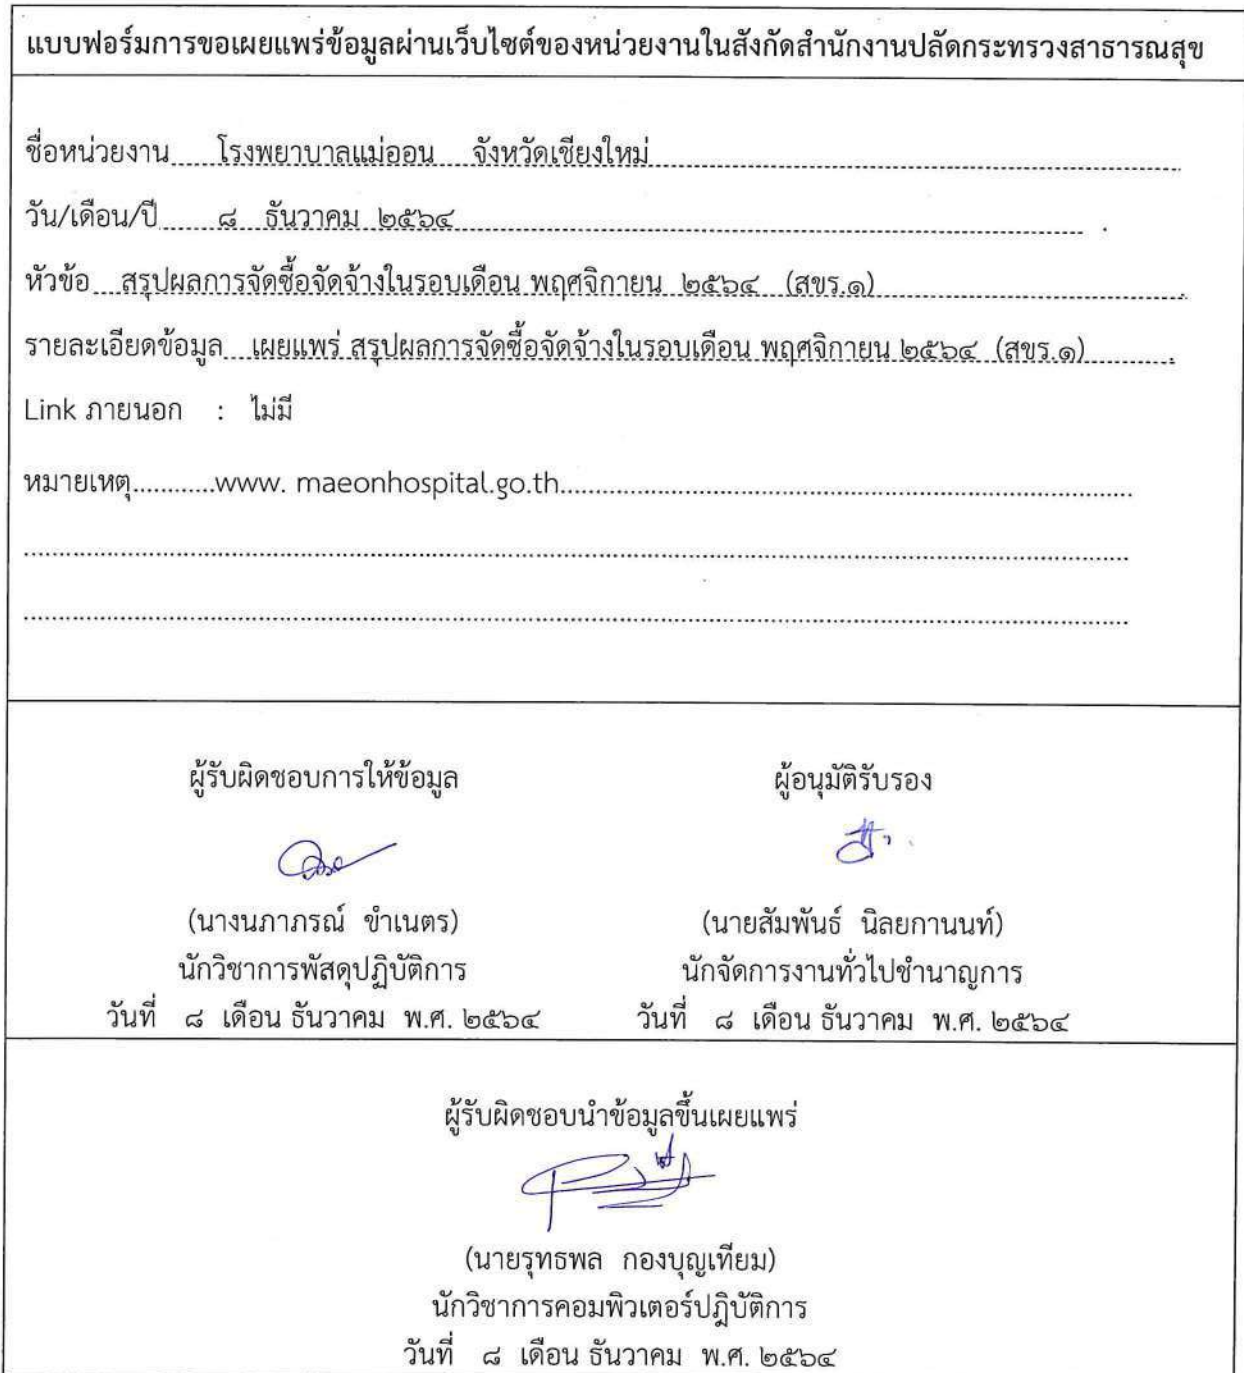 แบบฟอร์มการขอเผยแพร่ข้อมูลผ่านเว็บไซต์ของหน่วยงานในสังกัดสำนักงานปลัดกระทรวงสาธารณสุข
ชื่อหน่วยงาน.....โรงพยาบาลแม่ออน จังหวัดเชียงใหม่
วัน/เดือน/ปี.......๘ ธันวาคม ๒๕๖๔
หัวข้อ....สรุปผลการจัดซื้อจัดจ้างในรอบเดือน พฤศจิกายน ๒๕๖๔ (สขร.๑)
รายละเอียดข้อมูล....เผยแพร่ สรุปผลการจัดซื้อจัดจ้างในรอบเดือน พฤศจิกายน ๒๕๖๔ (สขร.๑)
Link ภายนอก : ไม่มี
หมายเหตุ............www. maeonhospital.go.th
ผู้รับผิดชอบการให้ข้อมูล ผู้อนุมัติรับรอง
(นางนภาภรณ์ ขำเนตร) (นายสัมพันธ์ นิลยกานนท์)
นักวิชาการพัสดุปฏิบัติการ นักจัดการงานทั่วไปชำนาญการ
วันที่ ๘ เดือน ธันวาคม พ.ศ. ๒๕๖๔ วันที่ ๘ เดือน ธันวาคม พ.ศ. ๒๕๖๔
ผู้รับผิดชอบนำข้อมูลขึ้นเผยแพร่
(นายรุทธพล กองบุญเทียม)
นักวิชาการคอมพิวเตอร์ปฏิบัติการ
วันที่ ๘ เดือน ธันวาคม พ.ศ. ๒๕๖๔